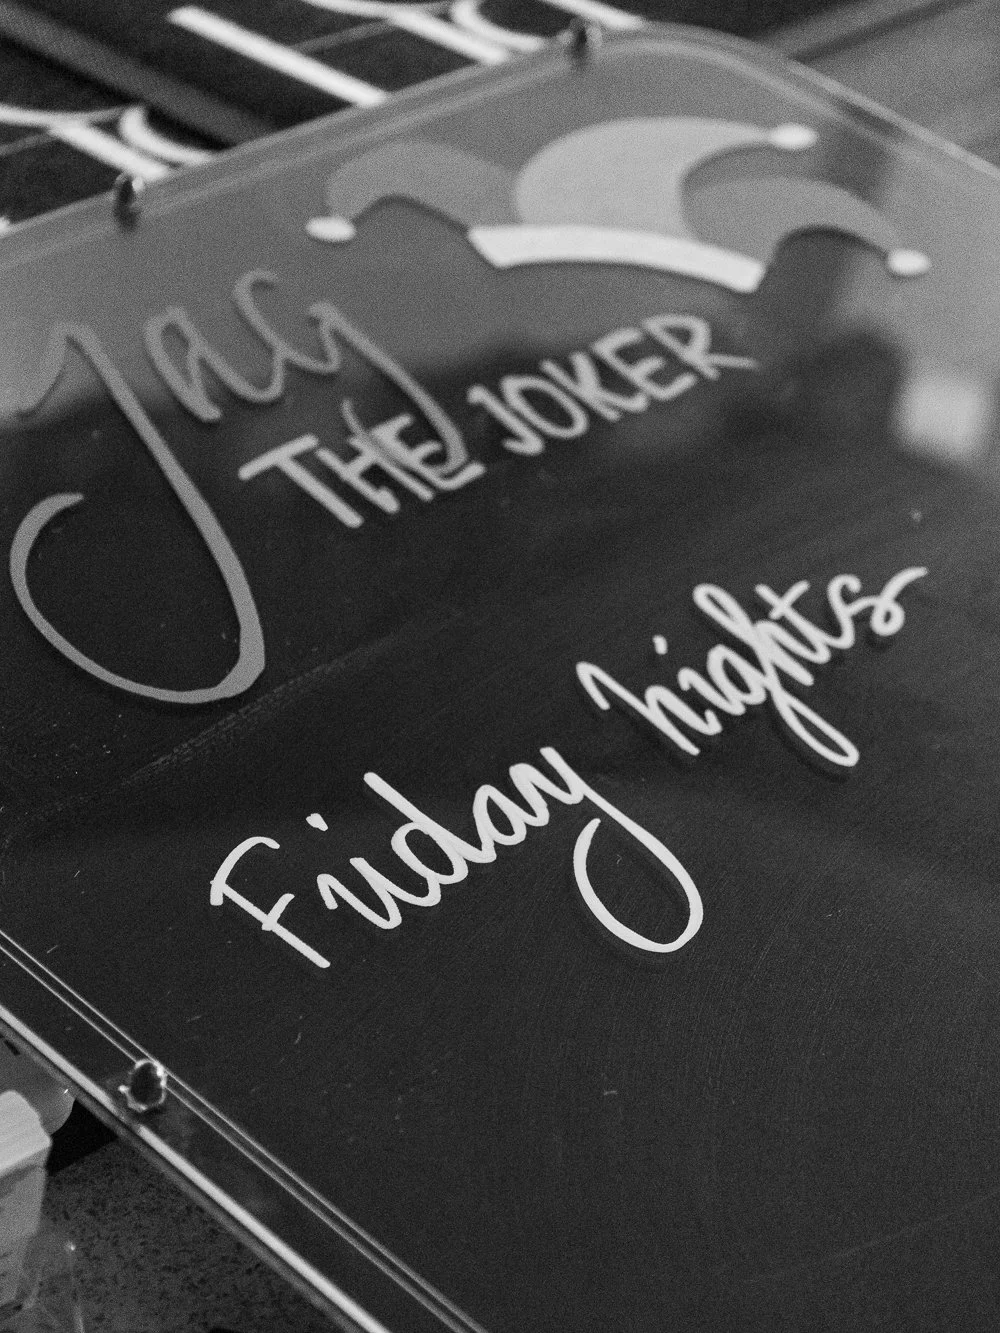 Jag
THE JOKER
Friday nights